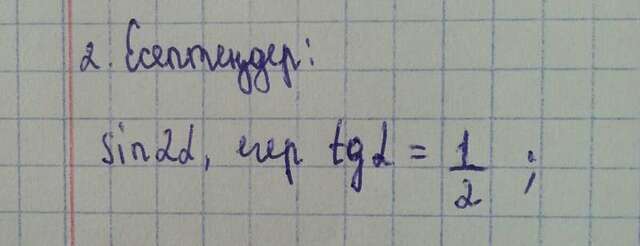 2. Есептеңдер:
sin2α, егер tgα = 1/2 ;